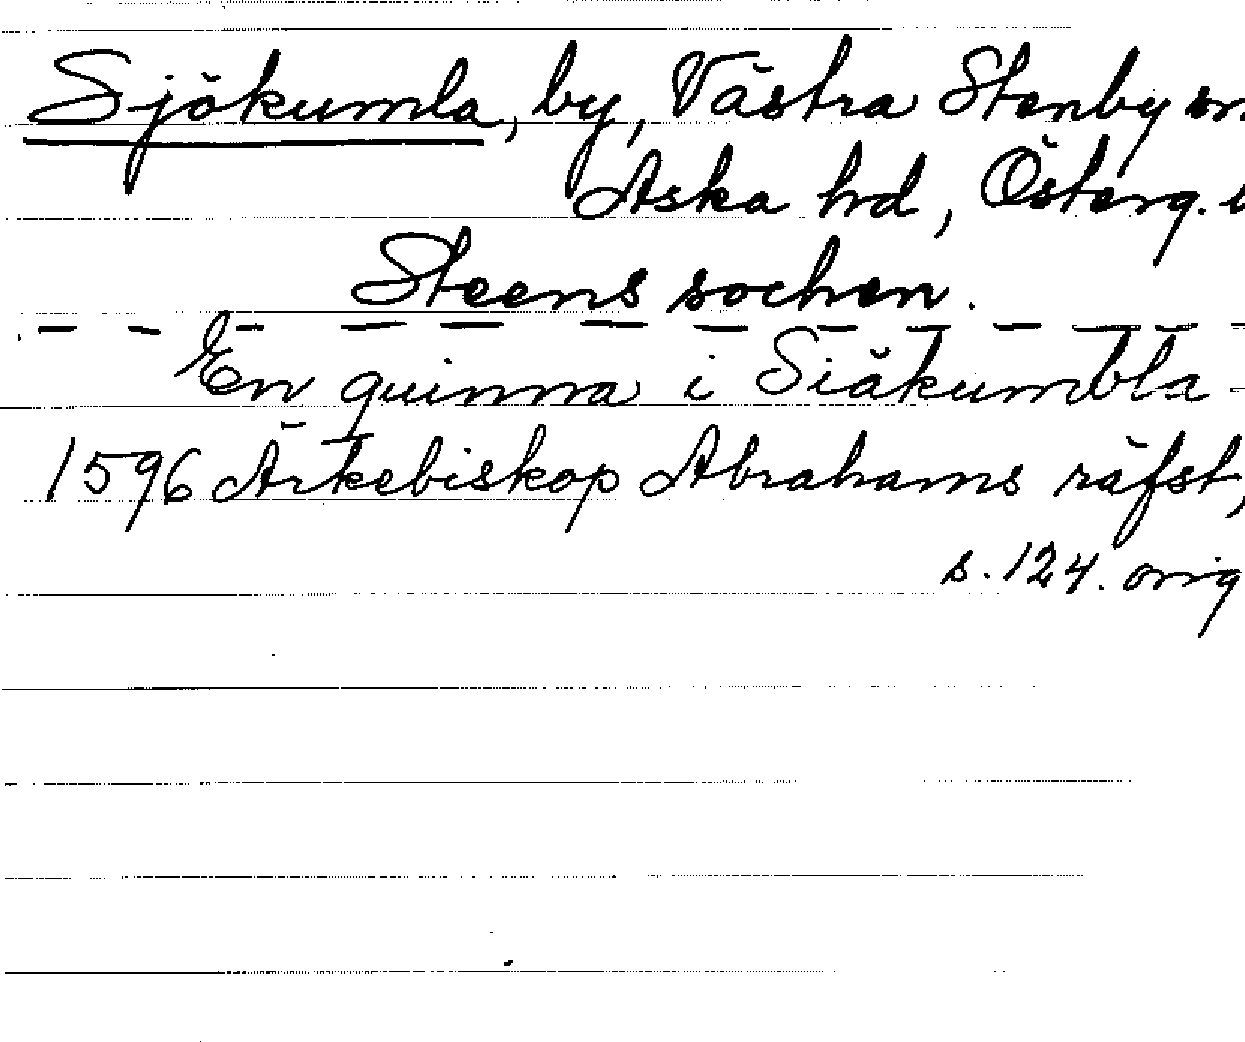 Sjökumla, by, Västra Stenby sn
Aska hd, Österg.
Steens sochen.
En quinna i Siåkumbla -
1596 Ärkebiskop Abrahams räfst,
s. 124. orig